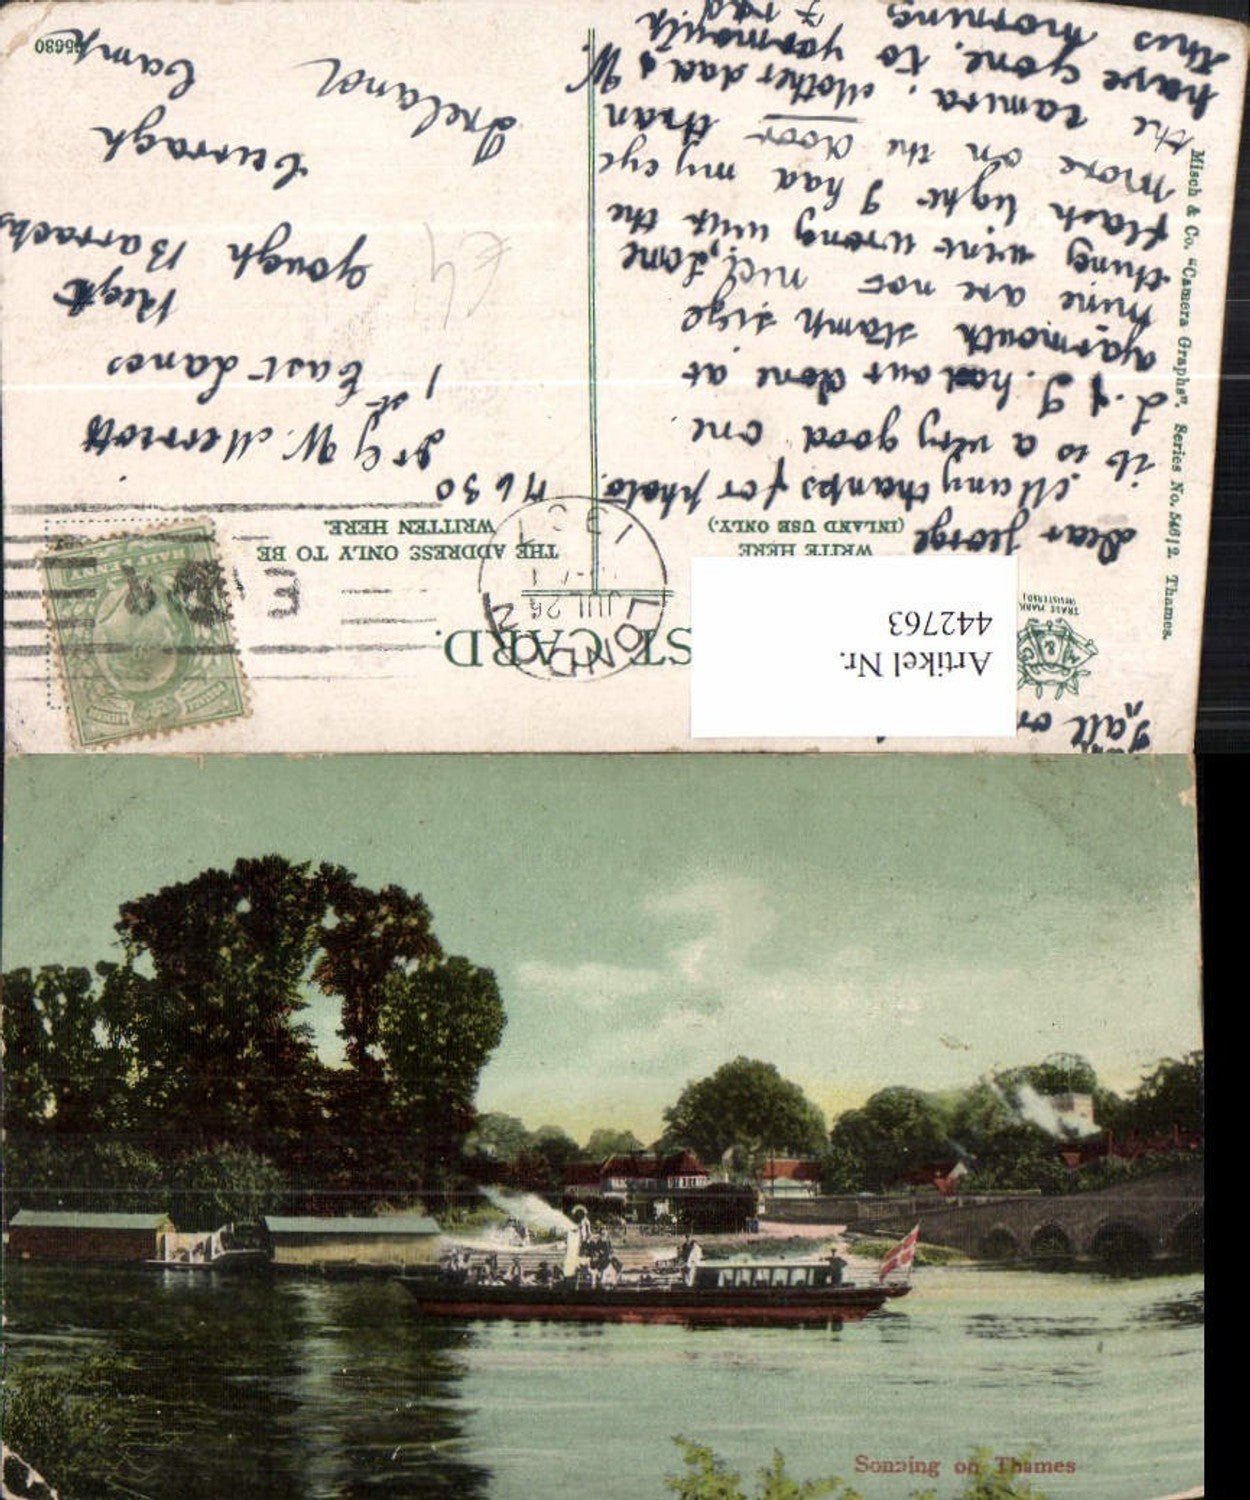 Misch & Co. "Camera Graphs". Series No. 546/2. Thames.
TRADE MARK
(REGISTERED)
ST CARD.
WRITE HERE
(INLAND USE ONLY.)
THE ADDRESS ONLY TO BE
WRITTEN HERE.
Artikel Nr.
442763
LONDON
JUL 26
E
Dear George
Many thanks for photo.
it is a very good one.
L. & I. had out done at
yarmouth stamp size
mine are not nice, some
thing went wrong with the
flash light I had my eye
more on the door than
the camra. Mother dad & W.
have gone to yarmouth
this morning
all
17630
Dr G W. Merriott
1st East Lancs
Regt
Gough Barracks
Curragh
Camp
Ireland
£4
Sonning on Thames